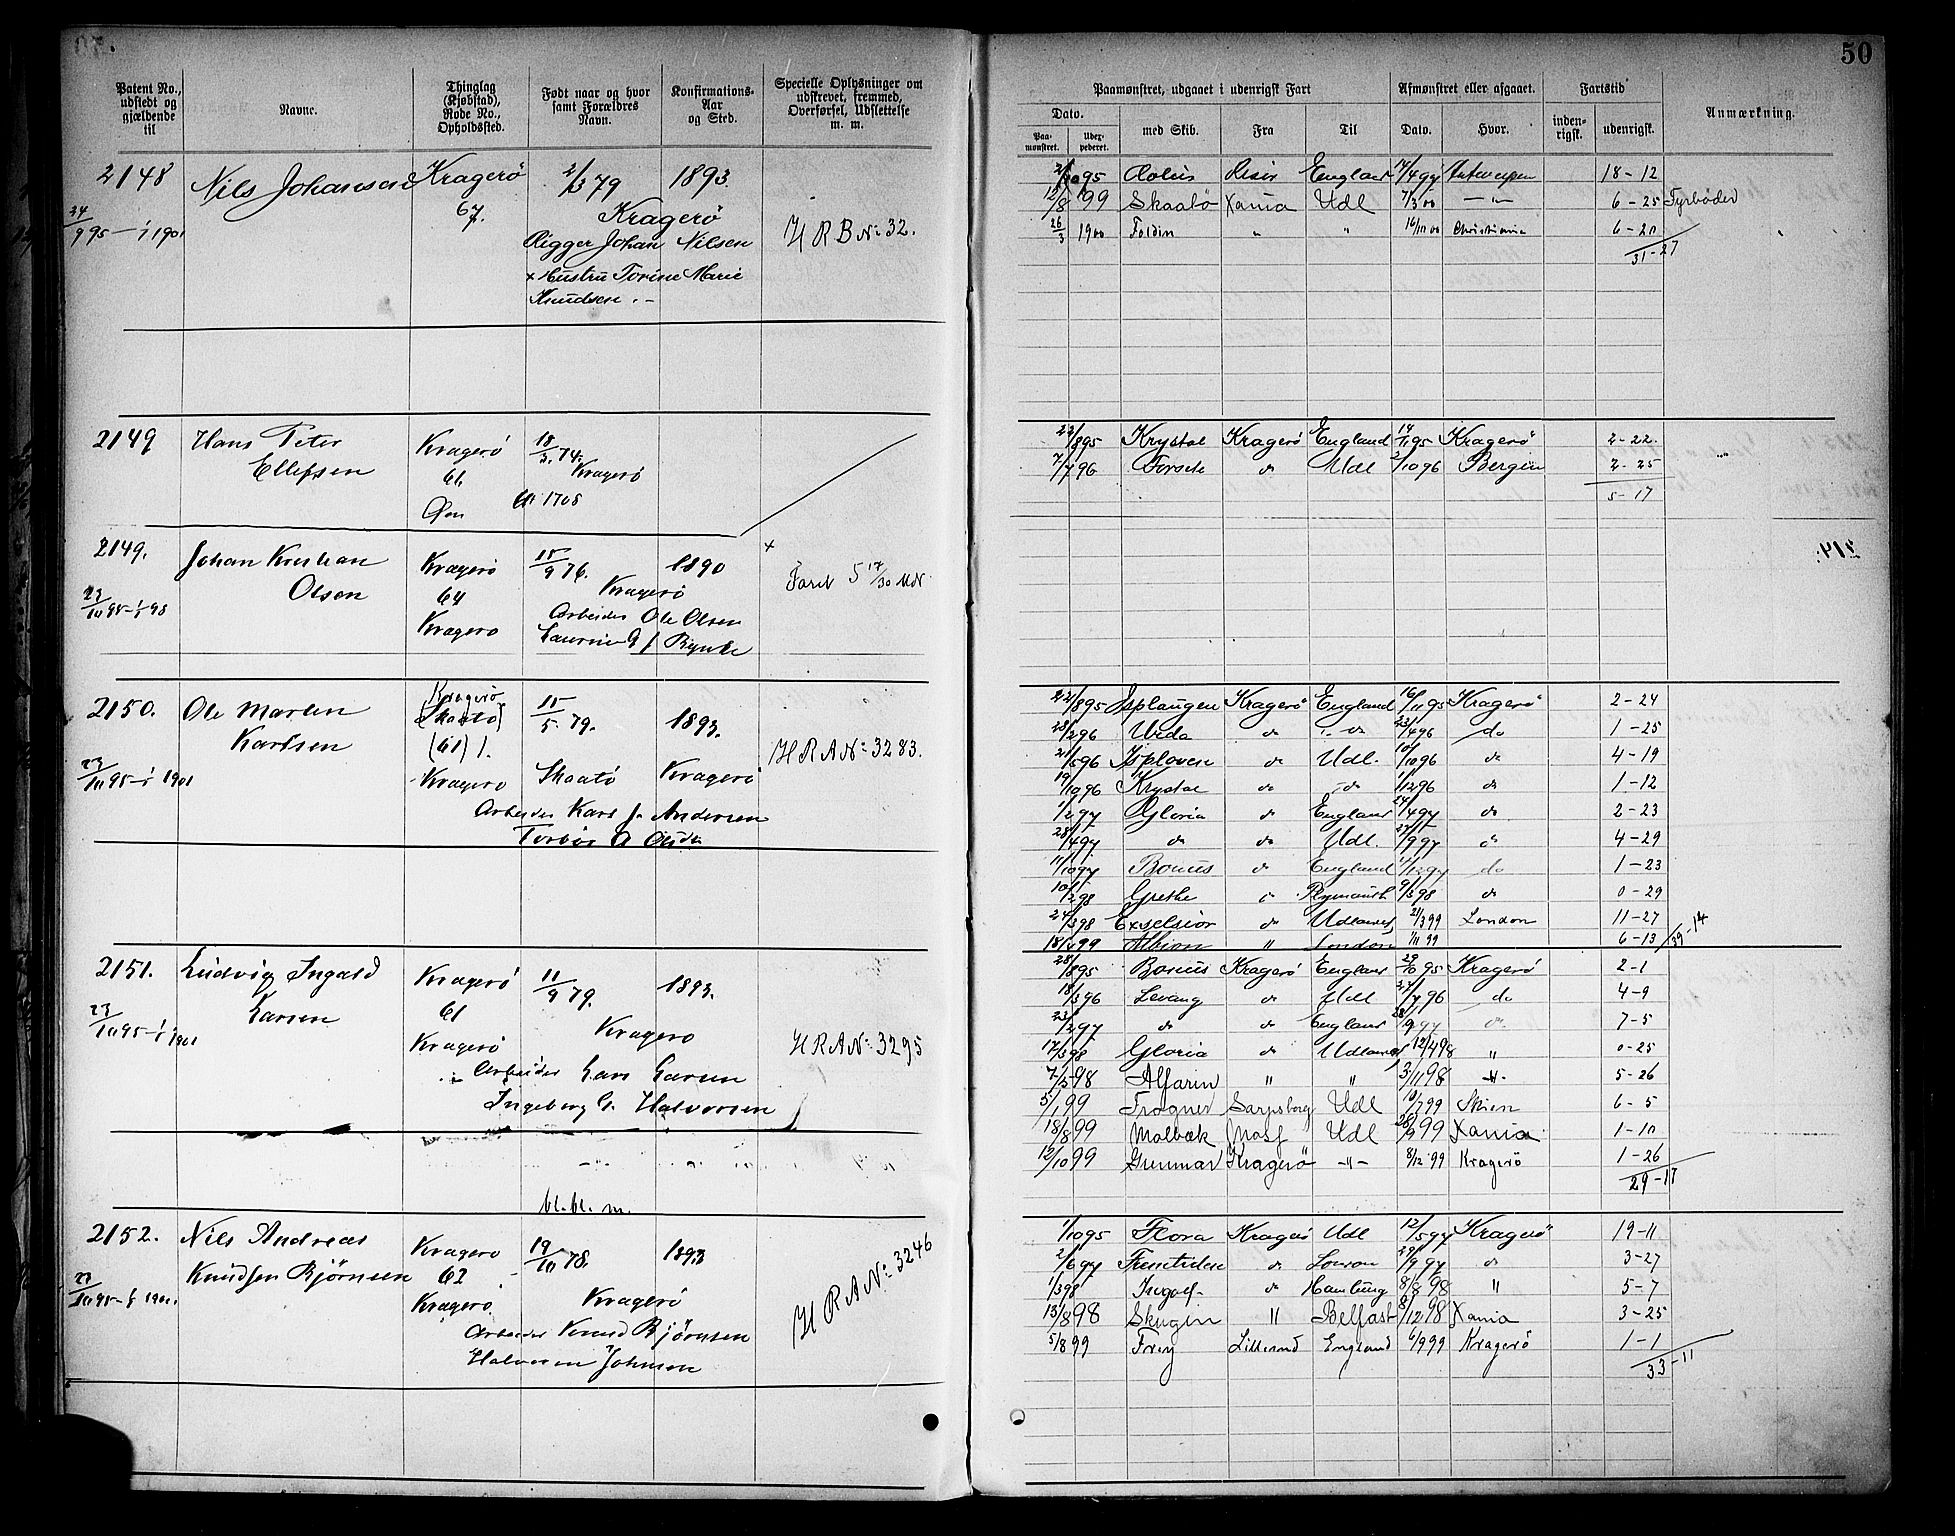 50
Patent No., udstedt og gjældende til
Navne.
Thinglag (Kjøbstad), Rode No., Opholdssted.
Født naar og hvor samt Forældres Navn.
Konfirmations-Aar og Sted.
Specielle Oplysninger om udskrevet, fremmed, Overførsel, Udslettelse m. m.
Paamønstret, udgaaet i udenrigsk Fart
Afmønstret eller afgaaet.
Fartstid
Anmærkning.
Dato.
med Skib.
Fra
Til
Dato.
Hvor.
inden-rigsk.
udenrigsk.
Paa-mønstret.
Uder-pederet.
2148 Nils Johansen Kragerö 2/3 79 1893.
24/9 95 – 1/1 1901 67. Kragerö
Rigger Johan Nilsen H R B No: 32.
+ Hustru Torine Marie
Knudsen . –
95 Aolus Risör England 14/4 97 Antwerpen 18 - 12
12/8 99 Skaatö Xania Udl 7/3 00 — " — 6 - 25 Fyrböder
26/3 1900 Foldin " " 16/11 00 Christiania 6 - 20
31 - 27
2149 Hans Peter Kragerö 18/3 74.
Ellefsen 61 Kragerö
Øen 1708
22/8 95 Krystal Kragerö England 14/11 95 Kragerö 2 - 22.
7/7 96 Forsete do Udl 2/10 96 Bergen 2 - 25
5 - 17
2149. Johan Kristian Kragerö 15/9 76. 1890 +
Olsen 64 Kragerö Faret 5 17/30 Md.
23/10 95 – 1/1 98 Kragerö Arbeider Ole Olsen
2150. Ole Marten Kragerö (Skaatö) 15/5 79. 1893.
Karlsen (61) 1. H R A No: 3283.
23/10 95 – 1/1 1901 Kragerö Skaatö Kragerö
Arbeider Karl J. Andersen
22/8 95 Isplaugen Kragerö England 16/11 95 Kragerö 2 - 24
28/2 96 Urda do do 23/4 96 do 1 - 25
21/5 96 Isploven do Udl. 10/10 96 do 4 - 19
19/10 96 Krystal do do 1/12 96 do 1 - 12
1/2 97 Gloria do England 24/4 97 do 2 - 23
28/4 97 do do Udl. 27/9 97 do 4 - 29
11/10 97 Bonus do England 4/12 97 do 1 - 23
10/2 98 Grethe do Plymouth 9/3 98 do 0 - 29
24/3 98 Exselsior do Udlandet 21/3 99 London 11 - 27
18/4 99 Albion " London 1/11 99 6 - 13
39 - 14
2151. Ludvig Ingald Kragerö 11/9 79. 1893.
Larsen 61 Kragerö H R A No: 3295
23/10 95 – 1/1 1901 Kragerö
Arbeider Lars Larsen
Ingeborg G. Halvorsen
28/8 95 Bonus Kragerö England 29/10 95 Kragerö 2 - 1
18/3 96 Levang do Udl 27/7 96 do 4 - 9
23/2 97 do do England 28/9 97 do 7 - 5
17/3 98 Gloria do Udlandet 12/4 98 " 0 - 25
7/5 98 Alfarin " " 3/11 98 " 5 - 26
5/1 99 Frogner Sarpsborg Udl 10/7 99 Skien 6 - 5
18/8 99 Molbæk Moss Udl 28/9 99 Xania 1 - 10
12/10 99 Gunnar Kragerö – " – 8/12 99 Kragerö 1 - 26
29 - 17
bl. bl. m.
2152. Nils Andreas Kragerö 19/10 78. 1893
Knudsen Björnsen 62 H R A No: 3246
23/10 95 – 1/1 1901. Kragerö Kragerö
Arbeider Knud Björnsen
Halvorsen Johnsen
1/10 95 Flora Kragerö Udl 12/5 97 Kragerö 19 - 11
2/6 97 Fremtiden do London 29/9 97 do 3 - 27
1/3 98 Ingolf do Hamburg 8/8 98 " 5 - 7
13/8 98 Skugin " Belfast 8/12 98 Xania 3 - 25
5/8 99 Frey Lillesand England 6/9 99 Kragerö 1 - 1
33 - 11